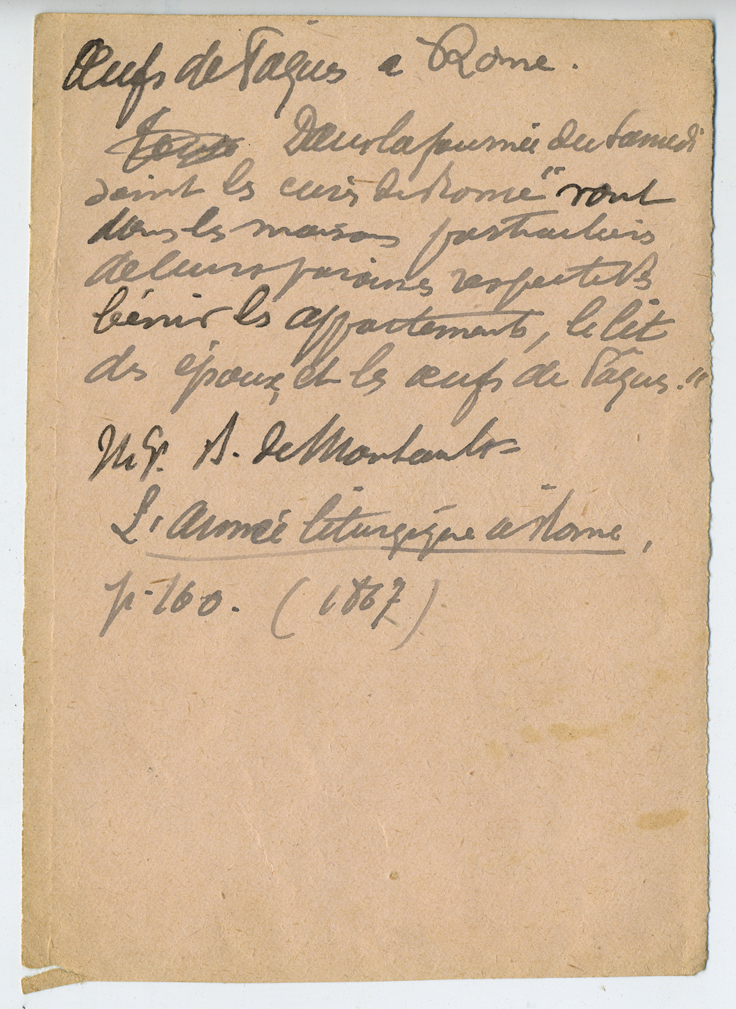 Œufs de Pâques à Rome.
Dans la journée du Samedi
saint les curés de Rome " vont
dans les maisons particulières
de leurs paroisses respectives
bénir les appartements, le lit
des époux, et les œufs de Pâques."
Mgr. B. de Montault
L'année liturgique à Rome,
p. 160. (1867)